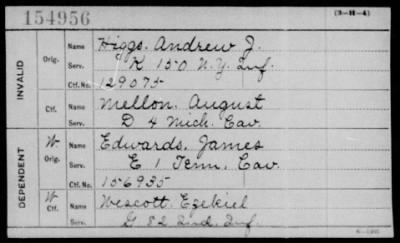 154956
(3—H—4)
INVALID
Orig. Name Higgs, Andrew J.
Serv. K 150 N.Y. Inf.
Ctf. No. 129075
Ctf. Name Mellon, August
Serv. D 4 Mich. Cav.
DEPENDENT
W. Orig. Name Edwards, James
Serv. E 1 Tenn. Cav.
Ctf. No. 156935
W Ctf. Name Wescott, Ezekiel
Serv. G 82 Ind. Inf.